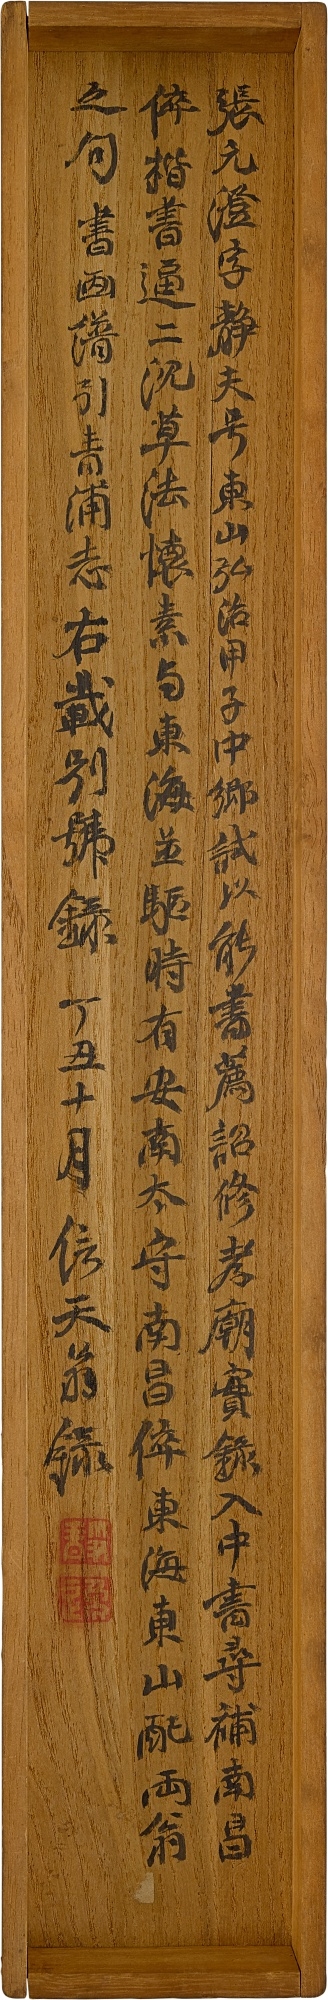 張元澄字静夫号東山弘治甲子中郷試以能書薦詔修孝廟實錄入中書尋補南昌
倅楷書逼二沈草法懐素与東海並驅時有安南太守南昌倅東海東山配両翁
之句 書画譜引青浦志右載別號錄 丁丑十月 信天翁錄